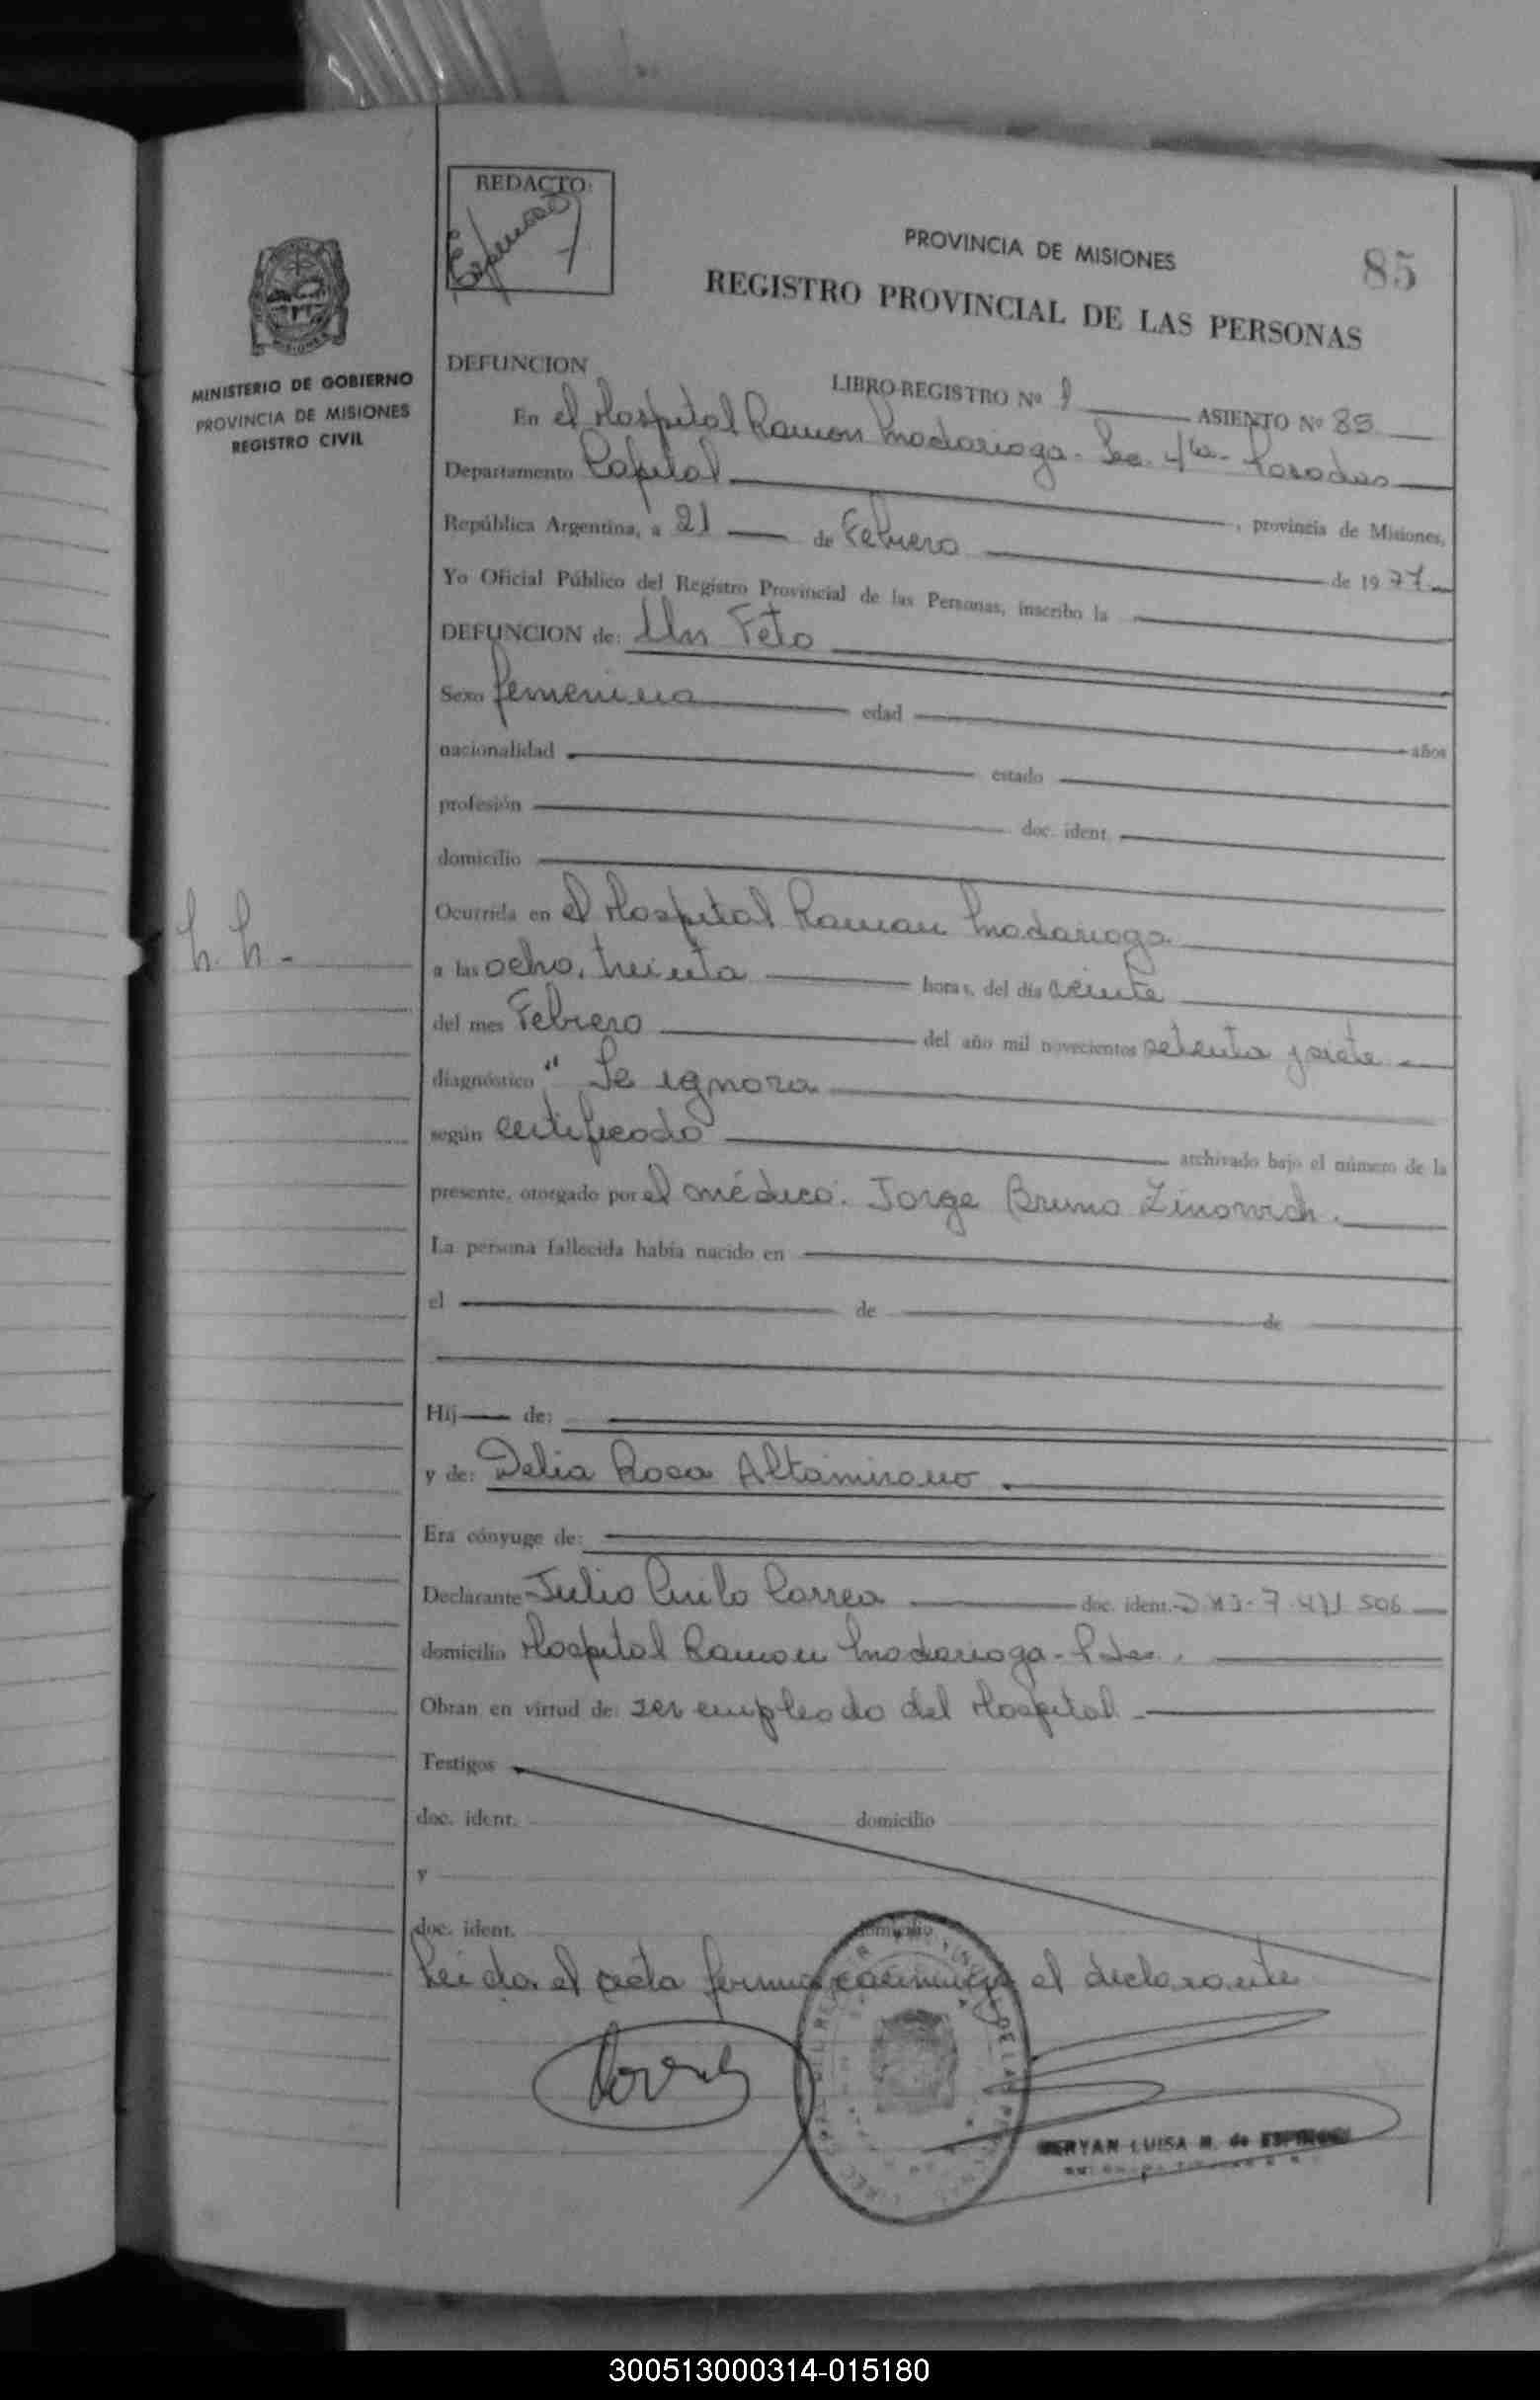 REDACTO:
PROVINCIA DE MISIONES
85
REGISTRO PROVINCIAL DE LAS PERSONAS
MINISTERIO DE GOBIERNO
PROVINCIA DE MISIONES
REGISTRO CIVIL
DEFUNCION
LIBRO-REGISTRO Nº 1 ASIENTO Nº 85
En el Hospital Ramon Madariaga. Sec. 4ta - Posadas
Departamento Capital, provincia de Misiones,
República Argentina, a 21 de Febrero de 1977
Yo Oficial Público del Registro Provincial de las Personas, inscribo la
DEFUNCION de: Un Feto
Sexo femenino edad años
nacionalidad estado
profesión doc. ident.
domicilio
Ocurrida en el Hospital Ramon Madariaga
h. h. -
a las ocho, treinta horas, del día veinte
del mes Febrero del año mil novecientos setenta y siete
diagnóstico " Se ignora
según certificado archivado bajo el número de la
presente, otorgado por el médico. Jorge Bruno Zinovich.
La persona fallecida había nacido en
el de de
Hij de:
y de: Delia Rosa Altamirano
Era cónyuge de:
Declarante Julio Cirilo Correa doc. ident. D N I - 7.471.506
domicilio Hospital Ramon Madariaga - Pdas.
Obran en virtud de: ser empleado del Hospital
Testigos
doc. ident. domicilio
y
doc. ident. domicilio
Leida el acta firma el declarante
LUISA M. de
300513000314-015180